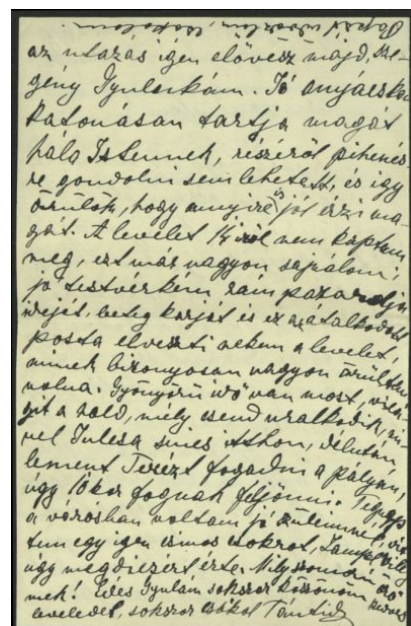 az utazás igen elővesz majd, sze-
gény Gyuluskám. Jó anyácska
katonásan tartja magát
hála Istennek, részéről pihenés-
re gondolni sem lehetett, és így
örülök, hogy annyira is jól érzi ma-
gát. A levelet nem kaptam
meg, ezt már nagyon sajnálom,
jó testvérkém rám pazarolja
idejét, beteg karját és ez az átalkodott
posta elveszti nekem a levelet,
minek bizonyosan nagyon örültem
volna. Gyönyörű idő van most, vilá-
gít a hold, mély csend uralkodik, mi-
vel Julcsa sincs itthon, délután
lement Terézt fogadni a pályán,
úgy 10kor fognak feljönni. Tegnap
a városban voltam jó szüleimnél, vit-
tem egy igen csinos csokrot,
úgy megdicsért érte. Mily szomorú ős
nek! Édes Gyulám sokszor köszönöm kedves
leveledet, sokszor csókol